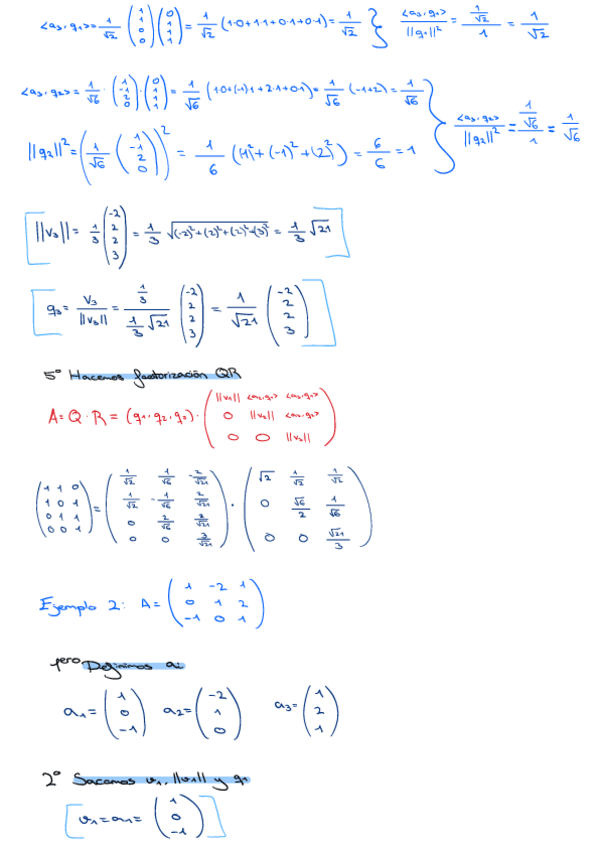 <a₃,q₁> = 1/√2 (1 1 0 0) (0 1 1 1) = 1/√2 (1·0+1·1+0·1+0·1) = 1/√2 } <a₃,q₁>/||q₁||² = 1/√2 / 1 = 1/√2
<a₃,q₂> = 1/√6 · (1 -1 2 0) · (0 1 1 1) = 1/√6 (1·0+(-1)·1+2·1+0·1) = 1/√6 (-1+2) = 1/√6
||q₂||² = (1/√6 (1 -1 2 0))² = 1/6 (1²+(-1)²+(2)²) = 6/6 = 1 } <a₃,q₂>/||q₂||² = 1/√6 / 1 = 1/√6
||v₃|| = 1/3 (-2 2 2 3) = 1/3 √(-2)²+(2)²+(2)²+(3)² = 1/3 √21
q₃ = v₃/||v₃|| = 1/3 / 1/3 √21 (-2 2 2 3) = 1/√21 (-2 2 2 3)
5º Hacemos factorización QR
A = Q · R = (q₁, q₂, q₃) · ( ||v₁|| <a₂,q₁> <a₃,q₁>
0 ||v₂|| <a₃,q₂>
0 0 ||v₃|| )
( 1 1 0 ) = ( 1/√2 1/√6 -2/√21 ) · ( √2 1/√2 1/√2 )
( 1 0 1 ) ( 1/√2 -1/√6 2/√21 ) ( 0 √6/2 1/√6 )
( 0 1 1 ) ( 0 2/√6 2/√21 ) ( 0 0 √21/3 )
( 0 0 1 ) ( 0 0 3/√21 )
Ejemplo 2: A = ( 1 -2 1
0 1 2
-1 0 1 )
1ero Definimos ai
a₁ = (1 0 -1) a₂ = (-2 1 0) a₃ = (1 2 1)
2º Sacamos v₁, ||v₁|| y q₁
v₁ = a₁ = (1 0 -1)